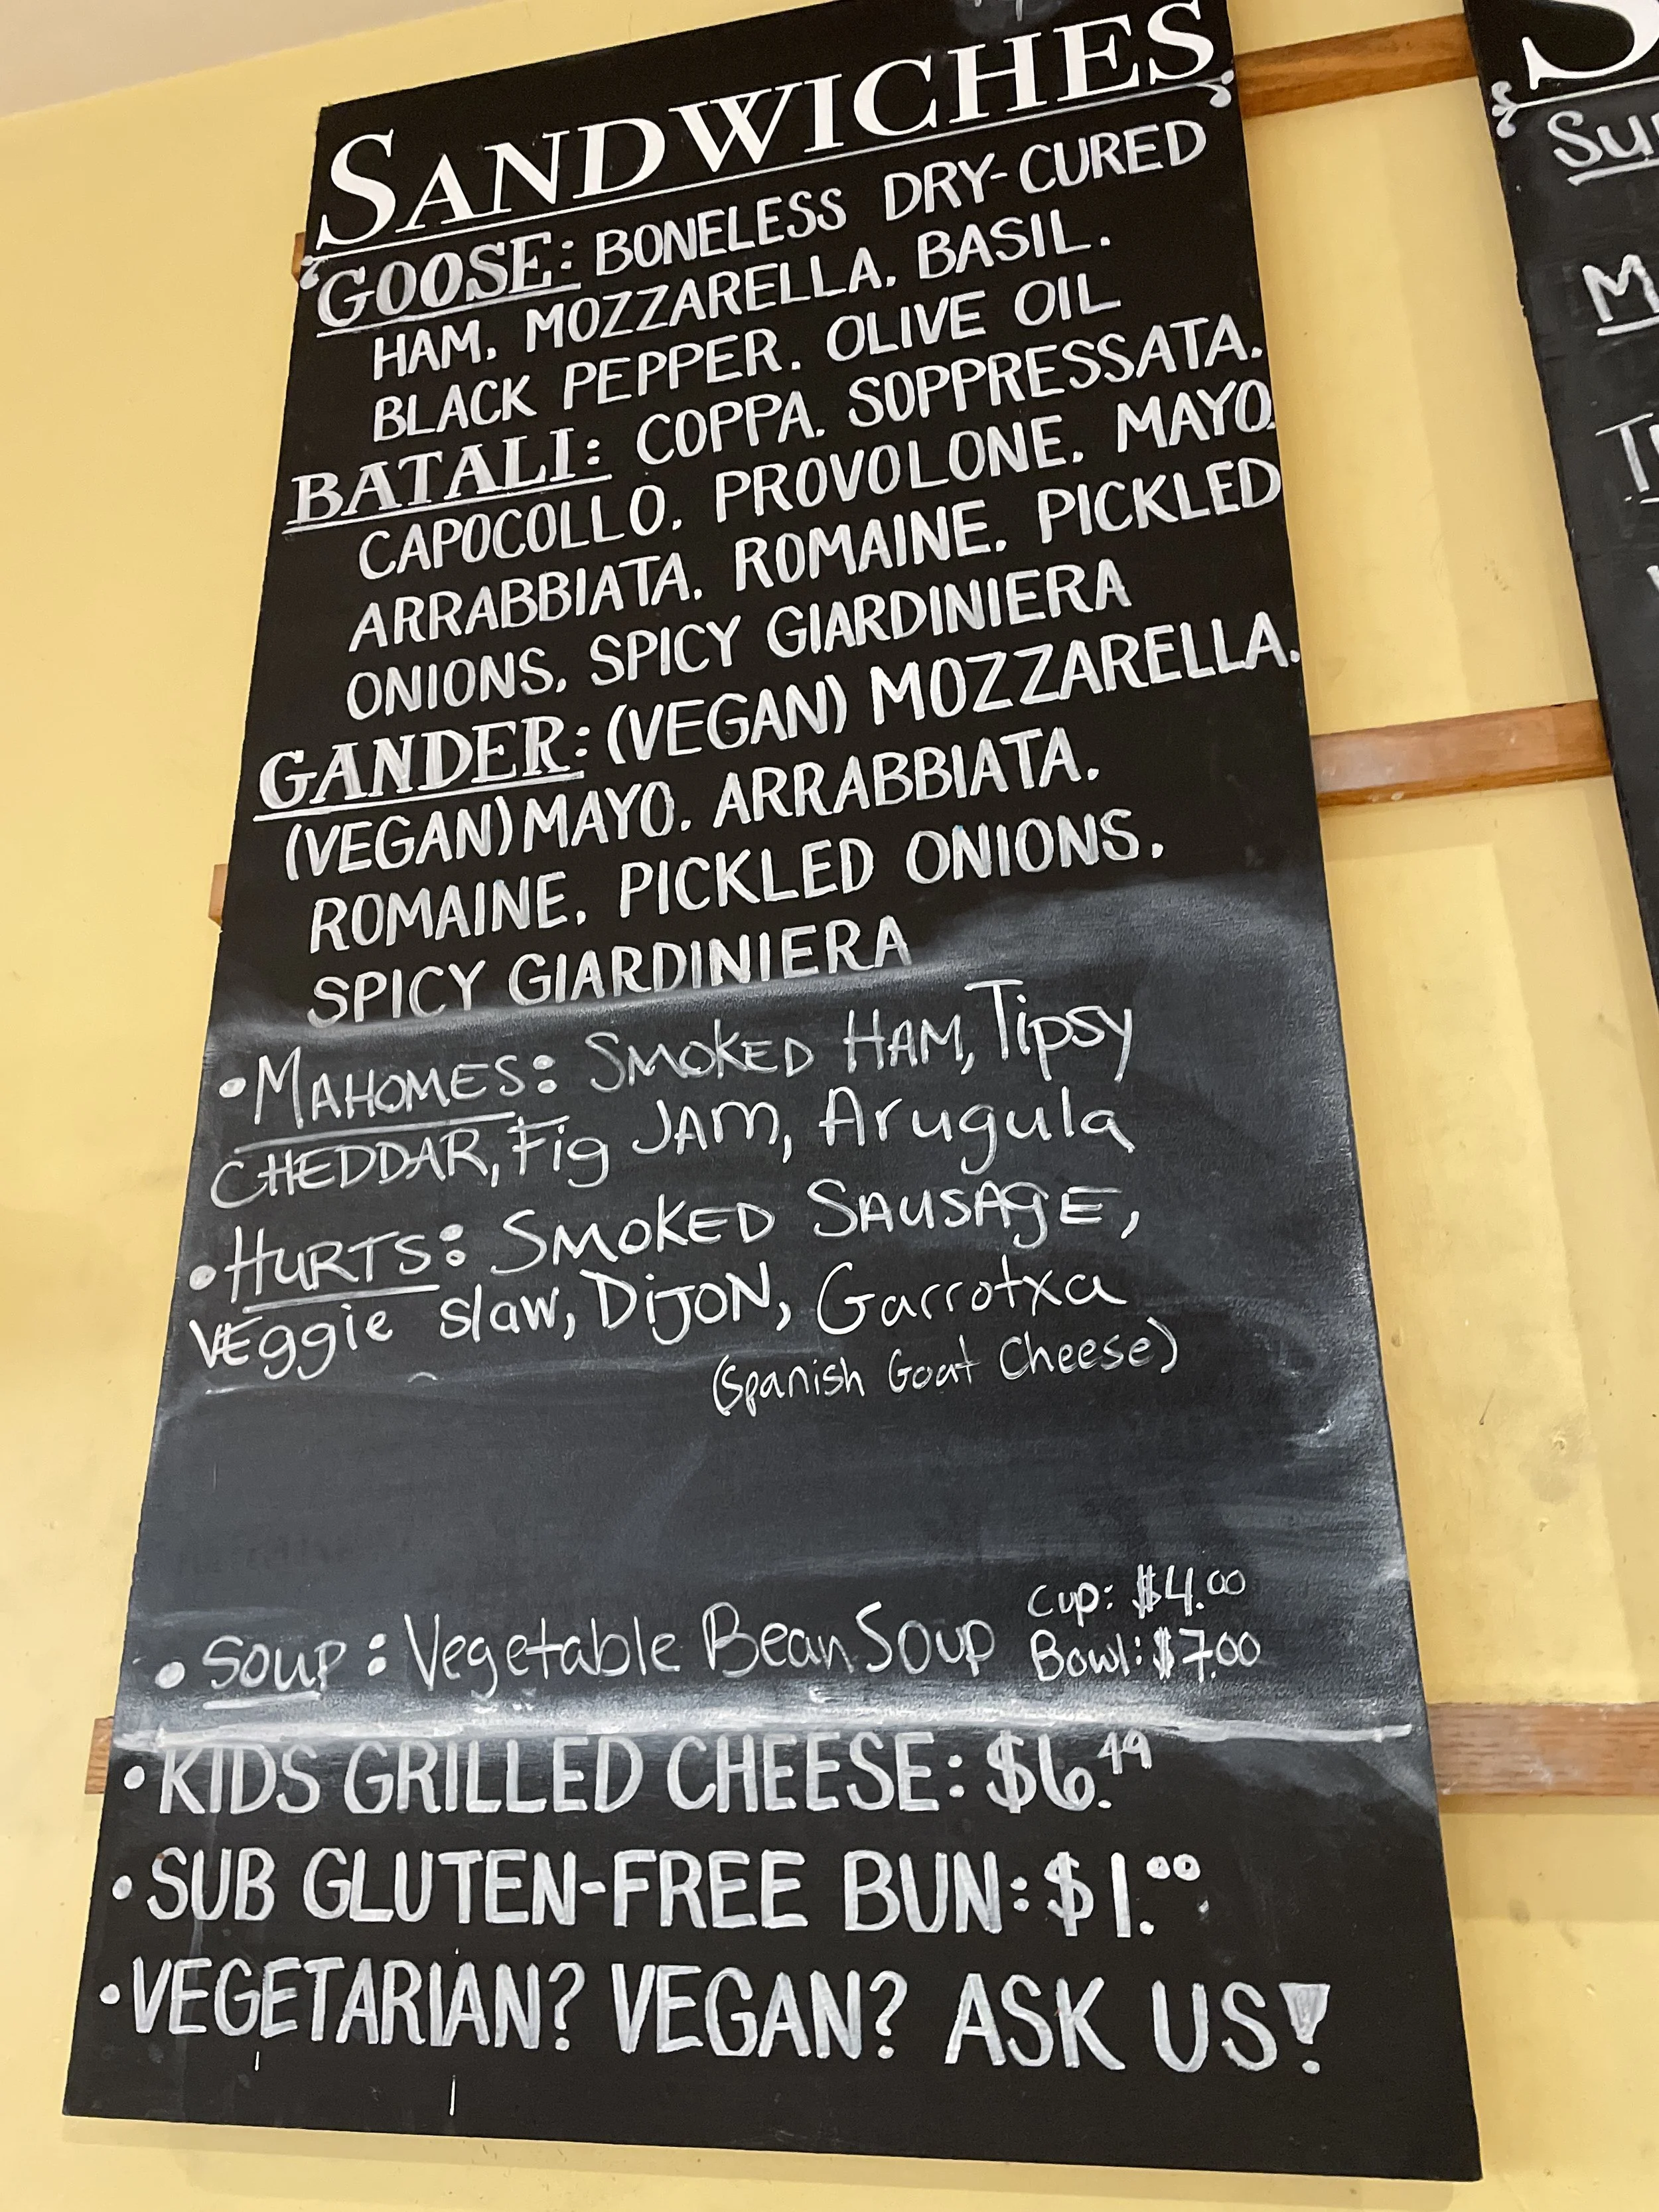 SANDWICHES
GOOSE: BONELESS DRY-CURED
HAM, MOZZARELLA, BASIL,
BLACK PEPPER, OLIVE OIL
BATALI: COPPA, SOPPRESSATA,
CAPOCOLLO, PROVOLONE, MAYO,
ARRABBIATA, ROMAINE, PICKLED
ONIONS, SPICY GIARDINIERA
GANDER: (VEGAN) MOZZARELLA,
(VEGAN) MAYO, ARRABBIATA,
ROMAINE, PICKLED ONIONS,
SPICY GIARDINIERA
• MAHOMES: SMOKED HAM, Tipsy
CHEDDAR, Fig JAM, Arugula
• HURTS: SMOKED SAUSAGE,
VEggie slaw, DiJON, Garrotxa
(Spanish Goat Cheese)
• Soup: Vegetable Bean Soup Cup: $4.00
Bowl: $7.00
• KIDS GRILLED CHEESE: $6.49
• SUB GLUTEN-FREE BUN: $1.00
• VEGETARIAN? VEGAN? ASK US!